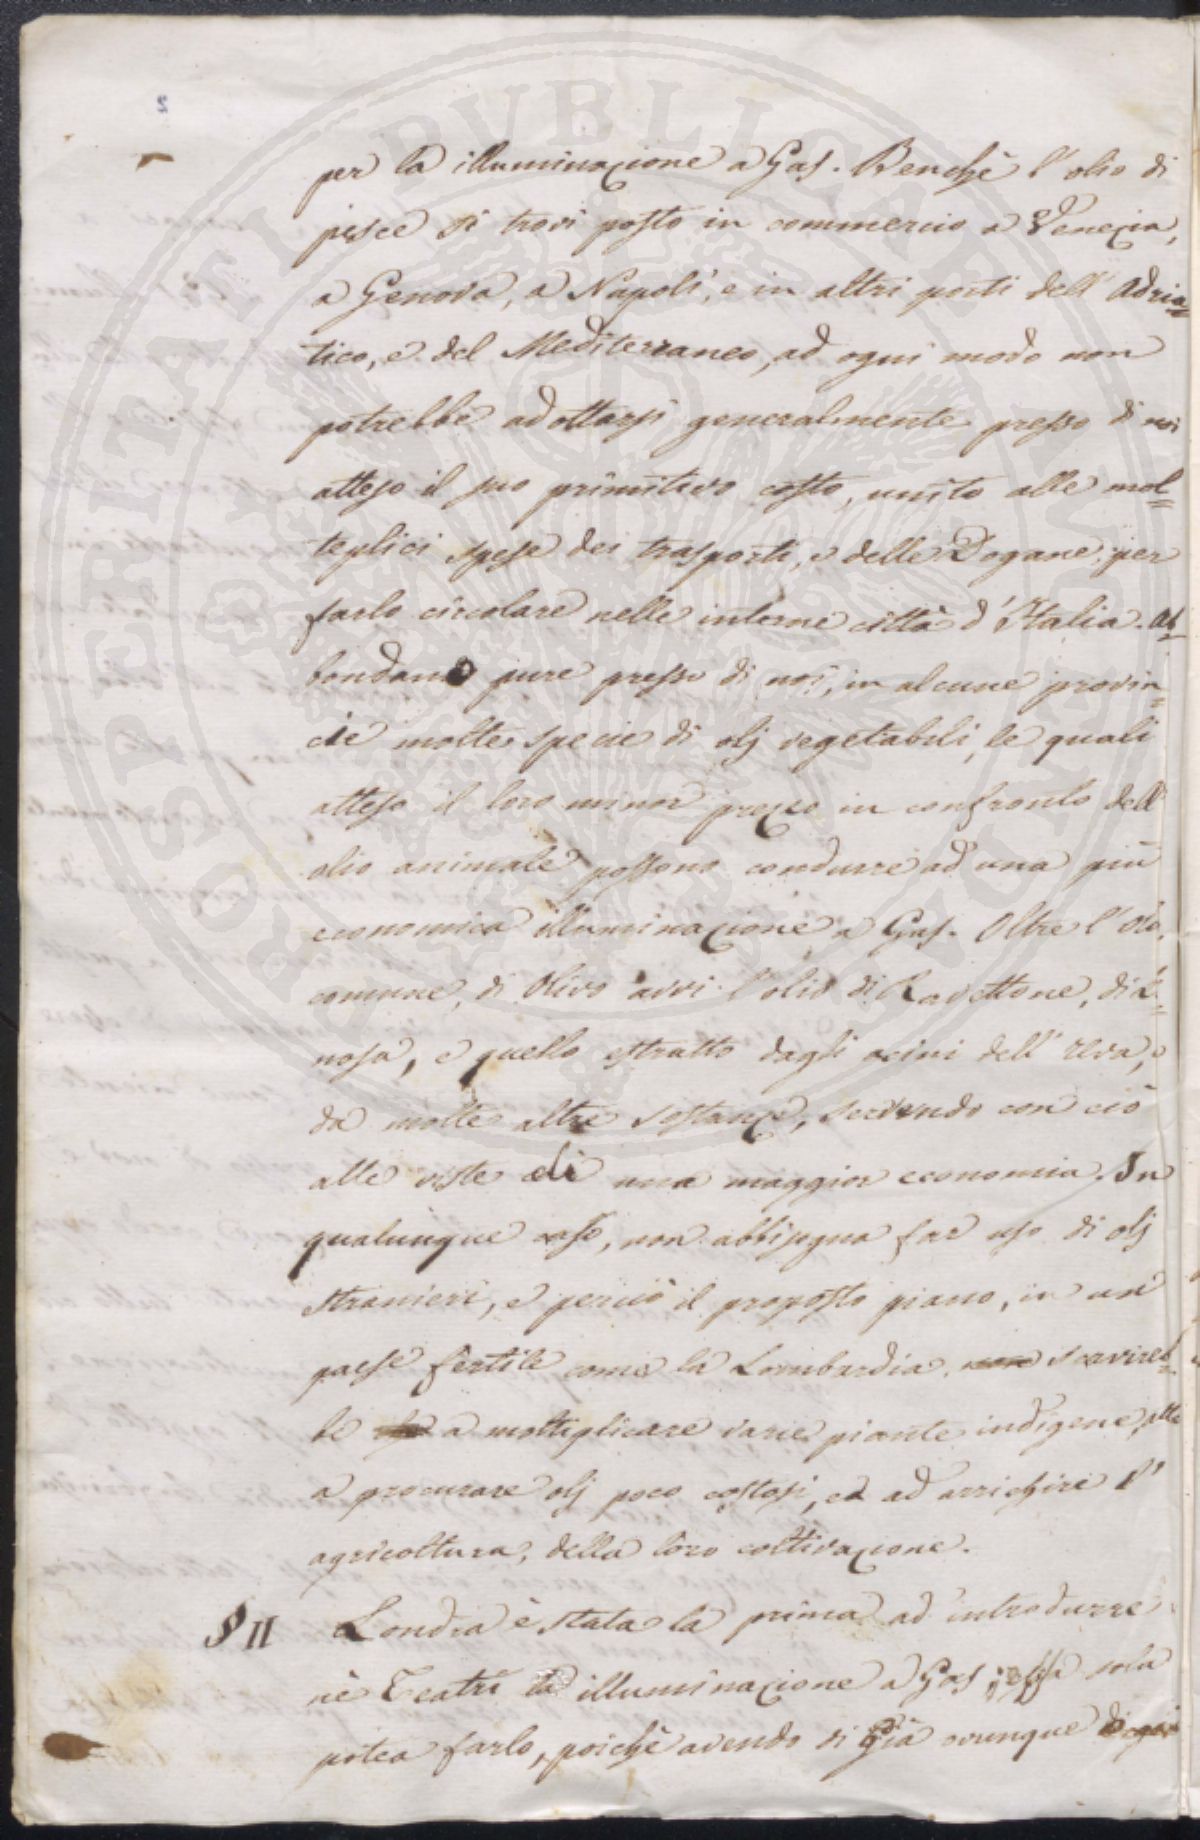 per la illuminazione a Gas. Benchè l'olio di
pesce si trovi posto in commercio a Venezia,
a Genova, a Napoli, e in altri porti dell' Adria=
tico, e del Mediterraneo, ad ogni modo non
potrebbe adottarsi generalmente presso di noi
atteso il suo primitivo costo, unito alle mol=
teplici spese dei trasporti, e delle Dogane, per
farlo circolare nelle interne città d'Italia. Ab=
bondano pure presso di noi, in alcune provin=
cie molte specie di olj vegetabili, le quali
atteso il loro minor prezzo in confronto dell'
olio animale possono condurre ad una più
economica illuminazione a Gas. Oltre l'olio
comune, di Olivo avvi l'olio di Ravettone, di Li=
nosa, e quello estratto dagli acini dell' Uva, e
da molte altre sostanze, servendo con ciò
alle viste di una maggior economia. In
qualunque caso, non abbisogna far uso di olj
stranieri, e perciò il proposto piano, in un
paese fertile come la Lombardia, non servireb=
be a moltiplicare varie piante indigene, atte
a procurare olj poco costosi, ed ad arrichire l'
agricoltura, della loro coltivazione.
§ II Londra è stata la prima ad introdurre
nè Teatri la illuminazione a Gas; essa sola
potea farlo, poichè avendo di già ovunque
PROSPERITATI PUBLICAE
2